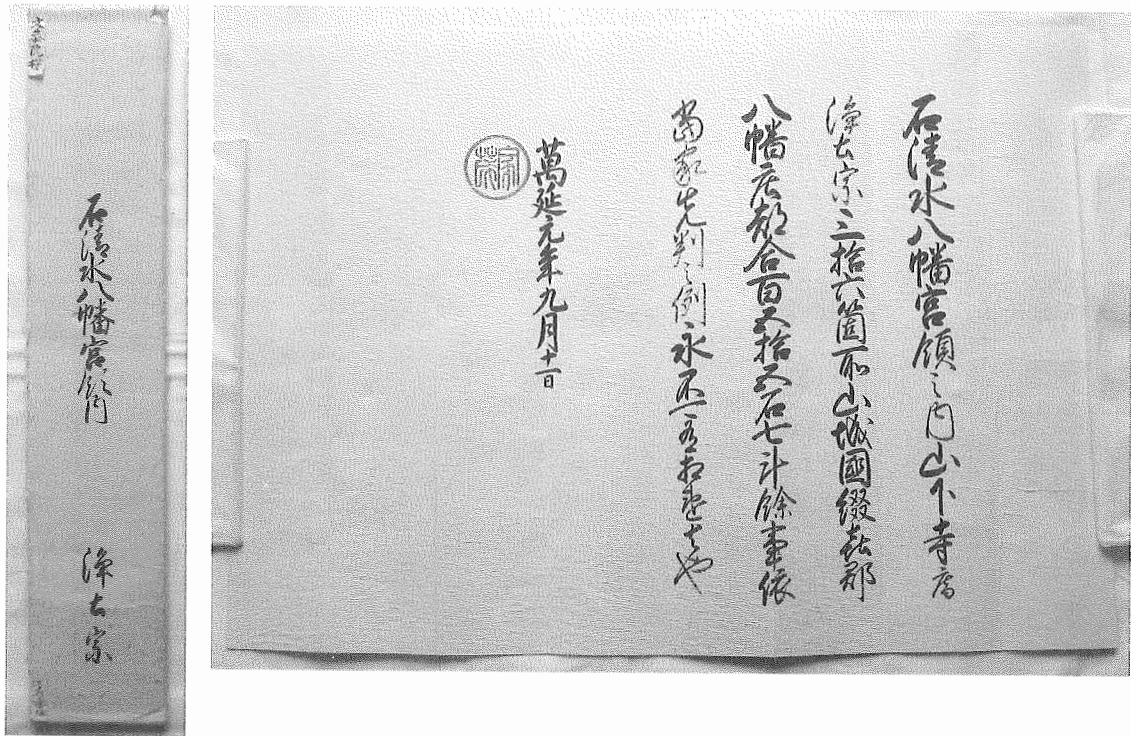 石清水八幡宮領之内山下寺庵
浄土宗三拾六箇所山城國綴喜郡
八幡庄都合百五拾五石七斗餘事依
當家先判之例永不可有相違者也
萬延元年九月十一日
家茂
石清水八幡宮領内
浄土宗